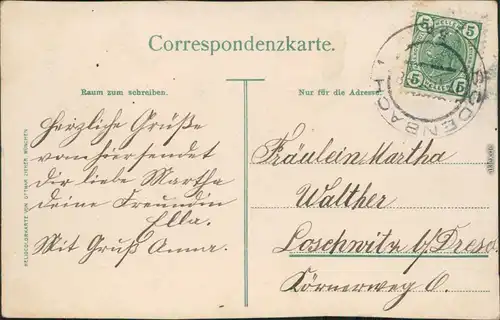 Correspondenzkarte.
Raum zum schreiben.
Nur für die Adresse.
Herzliche Grüße
von hier sendet
dir liebe Martha
deine Freundin
Ella.
Mit Gruß Anna.
Fräulein Martha
Walther
Loschwitz b/Dresd.
Körnerweg 6.
5 HELLER 5
5 HELLER 5
BODENBACH 1
HELIOCOLORKARTE VON OTTMAR ZIEHER, MÜNCHEN